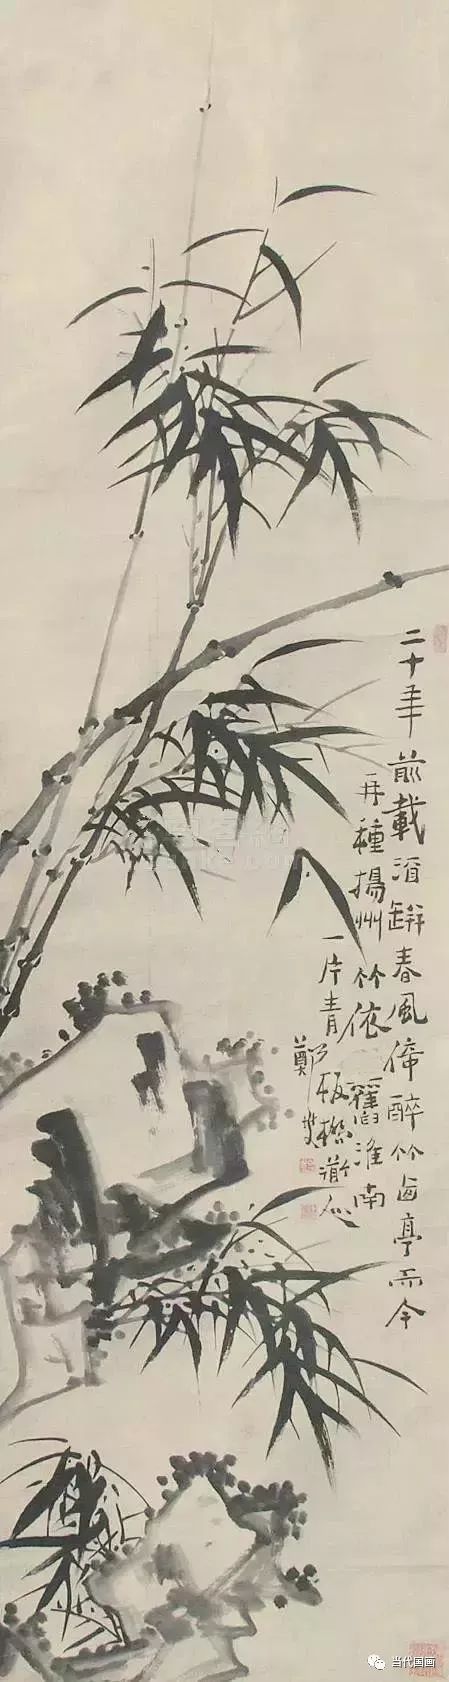 二十年前載酒缾春風倚醉竹西亭而今
再種揚州竹依舊淮南
一片青 板橋道人
鄭燮
当代国画